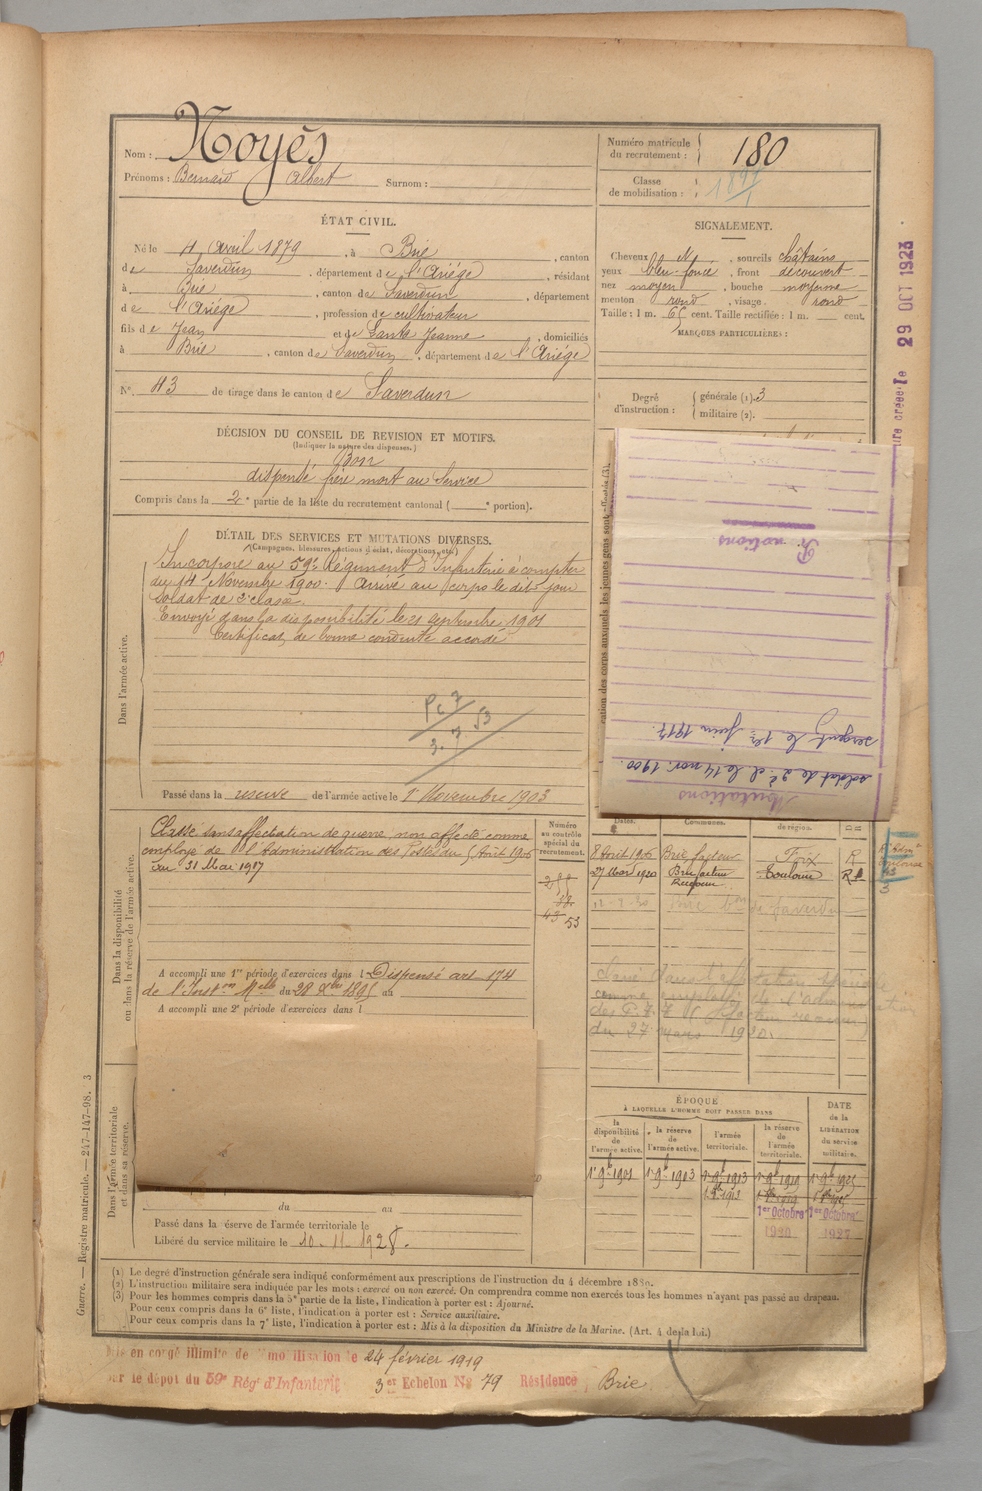 Nom : Noyès
Prénoms : Bernard Albert Surnom :
Numéro matricule du recrutement : 180
Classe de mobilisation :
ÉTAT CIVIL.
Né le 4 Avril 1879, à Brie, canton
de Saverdun, département de l'Ariège, résidant
à Brie, canton de Saverdun, département
de l'Ariège, profession de cultivateur
fils de Jean et de Santa Jeanne, domiciliés
à Brie, canton de Saverdun, département de l'Ariège
N° 43 de tirage dans le canton de Saverdun
SIGNALEMENT.
Cheveux, sourcils châtains
yeux bleu-foncé, front découvert
nez moyen, bouche moyenne
menton rond, visage rond
Taille : 1 m. 65 cent. Taille rectifiée : 1 m. cent.
MARQUES PARTICULIÈRES :
Degré d'instruction : générale (1). 3
militaire (2).
29 OCT 1923
DÉCISION DU CONSEIL DE REVISION ET MOTIFS.
(Indiquer la nature des dispenses.)
Bon
dispensé frère mort au Service
Compris dans la 2e partie de la liste du recrutement cantonal ( e portion).
DÉTAIL DES SERVICES ET MUTATIONS DIVERSES.
(Campagnes, blessures, actions d'éclat, décorations, etc.)
Dans l'armée active.
Incorporé au 59e Régiment d'Infanterie à compter
du 14 Novembre 1900. Arrivé au corps le dit jour
soldat de 2e classe.
Envoyé dans la disponibilité le 21 septembre 1901
Certificat de bonne conduite accordé
Passé dans la réserve de l'armée active le 1er Novembre 1903
cation des corps auxquels les jeunes gens sont affectés (3)
Mutations
soldat de 2e cl. le 14 nov. 1900.
sergent le 1er juin 1917.
Dans la disponibilité
ou dans la réserve de l'armée active.
Classé sans affectation de guerre, non affecté comme
employé de l'Administration des Postes du 8 Août 1906
au 31 Mai 1917
A accompli une 1re période d'exercices dans l Dispensé art 174
de l'Instion Melle du 28 Xbre 1895 au
A accompli une 2e période d'exercices dans l
Numéro au contrôle spécial du recrutement.
53
Dates. Communes. de région.
8 Août 1906 Brie facteur Foix R
27 Mars 1920 Brie facteur Toulouse
12-7-30 Brie Con de Saverdun
comme employé de l'administration
du 27 mars 1920.
ÉPOQUE
À LAQUELLE L'HOMME DOIT PASSER DANS
DATE de la LIBÉRATION du service militaire.
la disponibilité de l'armée active.
la réserve de l'armée active.
l'armée territoriale.
la réserve de l'armée territoriale.
1er 9bre 1901 1er 9bre 1903 1er 9bre 1913 1er 9bre 1919 1er 9bre 1925
1er Octobre 1920 1er Octobre 1927
Dans l'armée territoriale
et dans sa réserve.
du au
Passé dans la réserve de l'armée territoriale le
Libéré du service militaire le 10-11-1928.
(1) Le degré d'instruction générale sera indiqué conformément aux prescriptions de l'instruction du 4 décembre 1889.
(2) L'instruction militaire sera indiquée par les mots : exercé ou non exercé. On comprendra comme non exercés tous les hommes n'ayant pas passé au drapeau.
(3) Pour les hommes compris dans la 5e partie de la liste, l'indication à porter est : Ajourné.
Pour ceux compris dans la 6e liste, l'indication à porter est : Service auxiliaire.
Pour ceux compris dans la 7e liste, l'indication à porter est : Mis à la disposition du Ministre de la Marine. (Art. 4 de la loi.)
Guerre. — Registre matricule. — 247-147-98. 3
Mis en congé illimité de démobilisation le 24 février 1919
par le dépôt du 59e Régt d'Infanterie 3er Echelon No 79 Résidence Brie